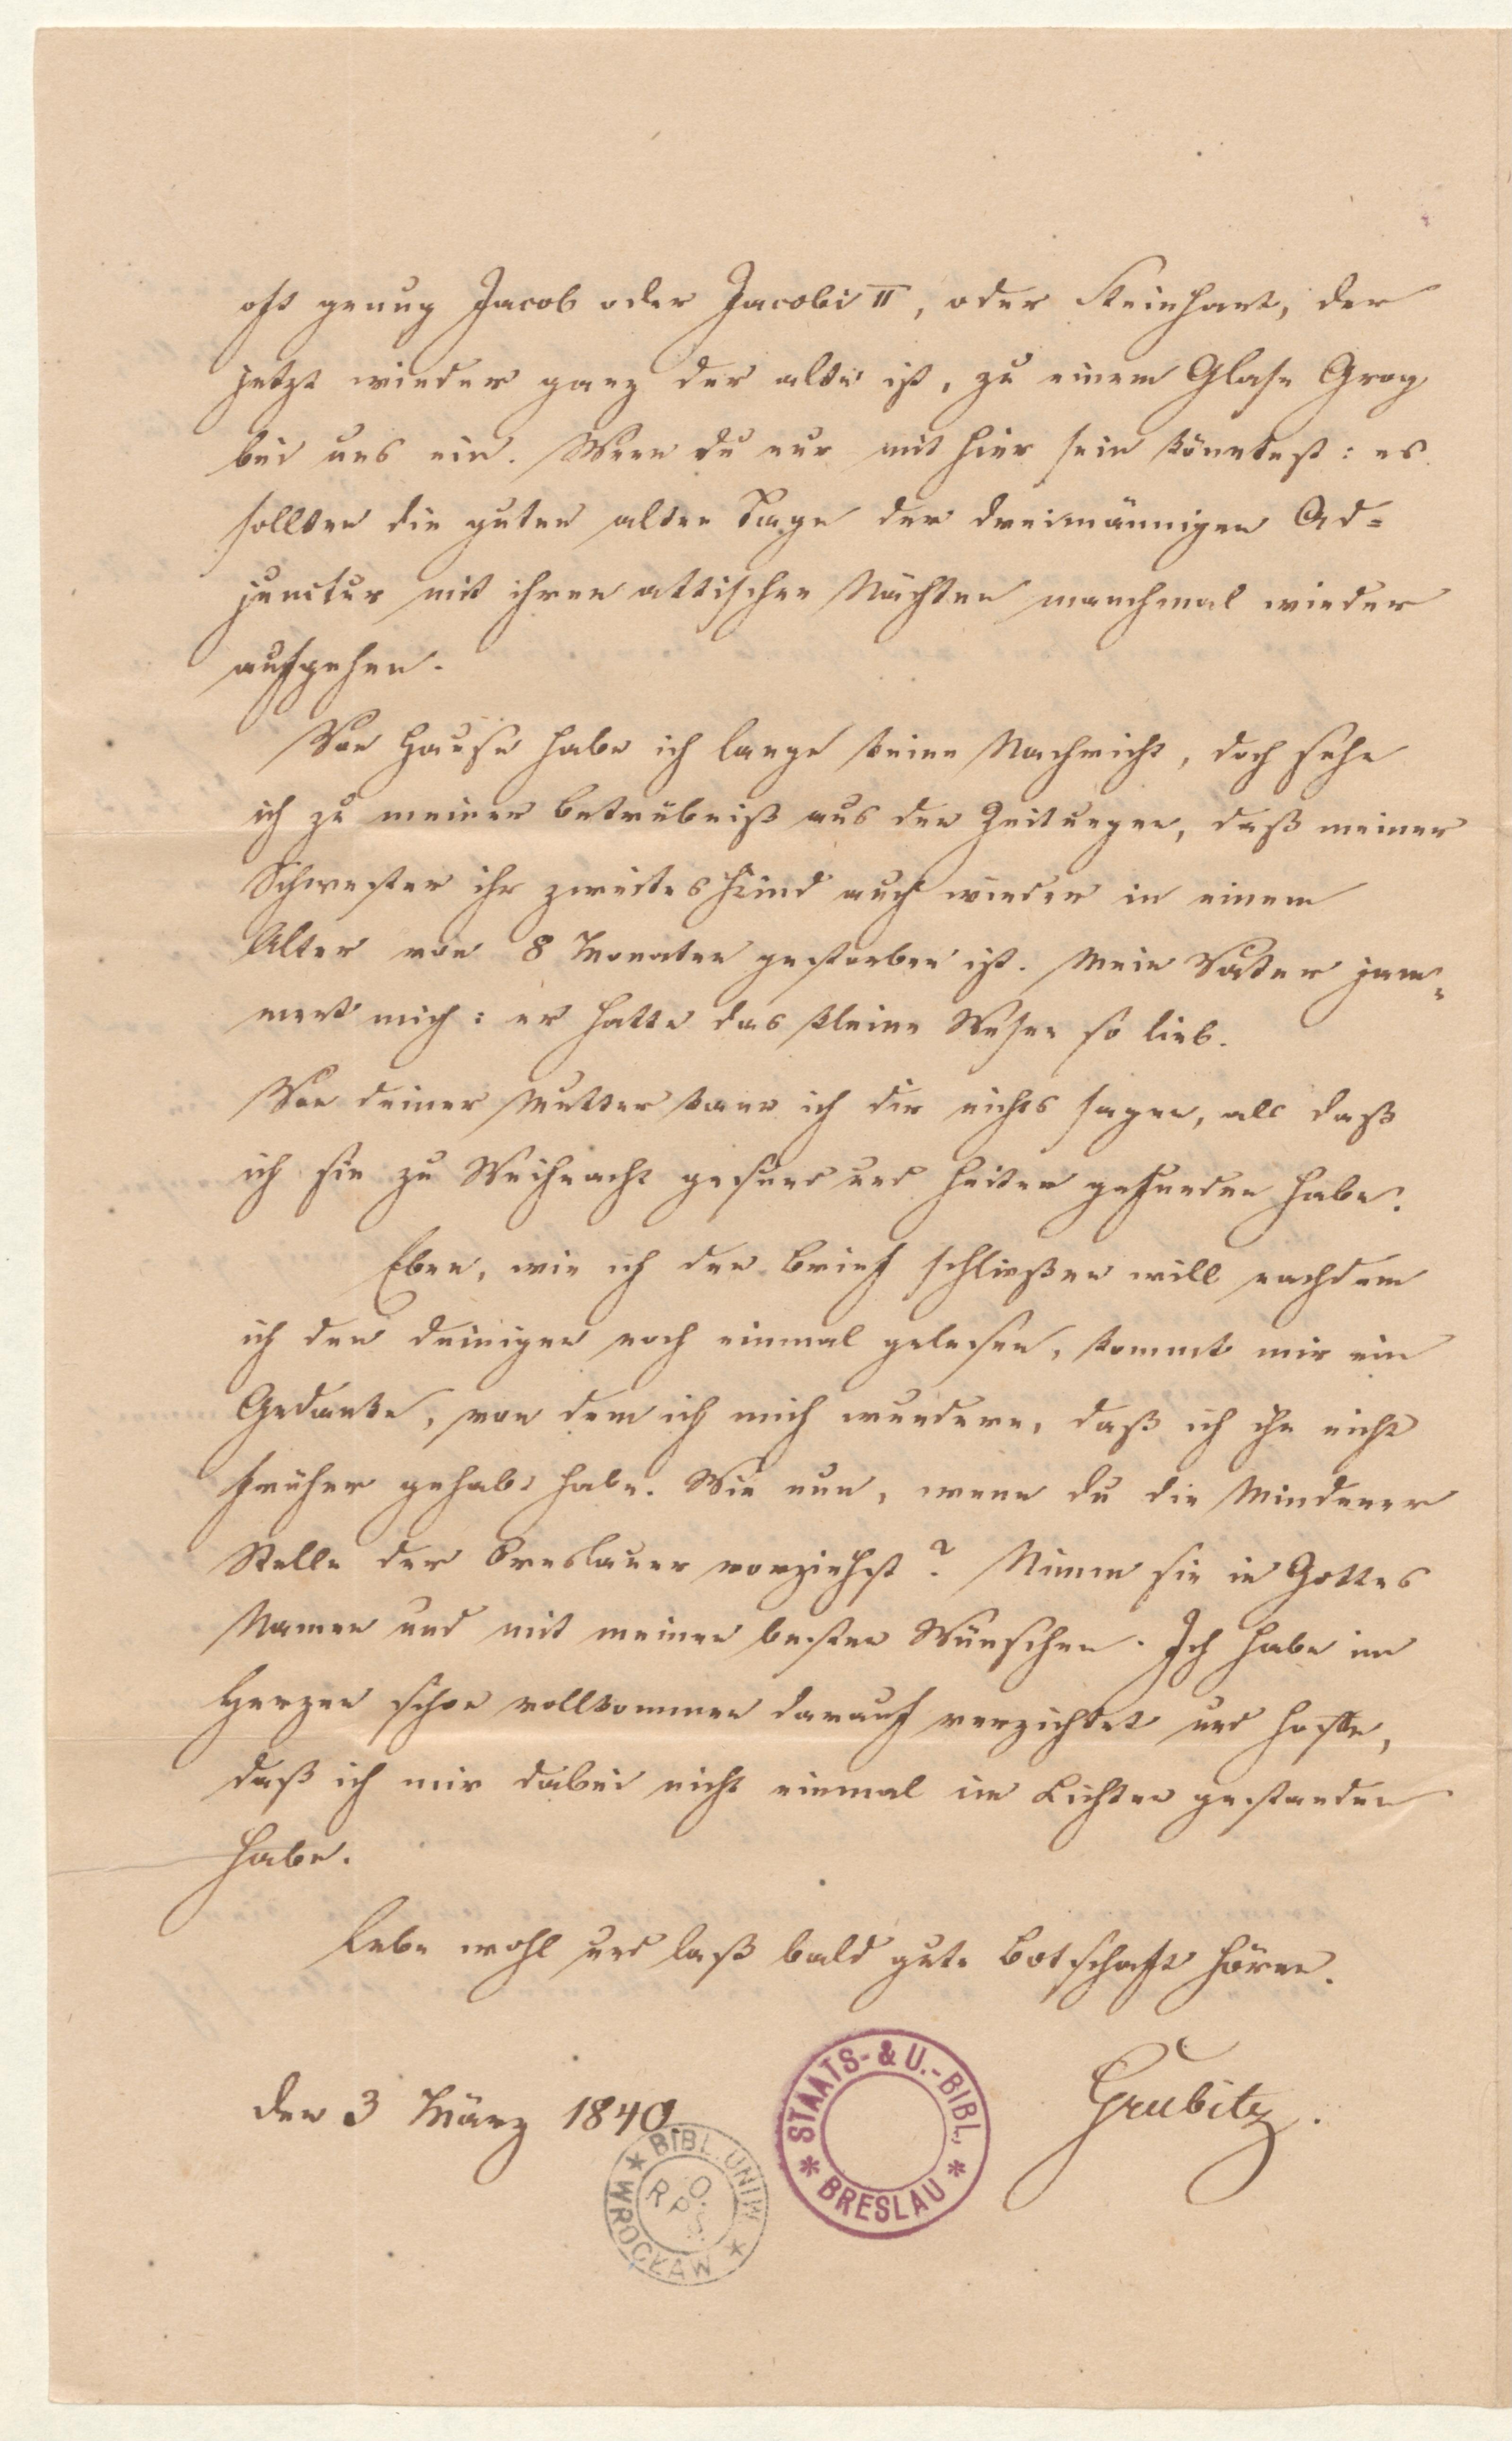 oft genug Jacob oder Jacobi II, oder Steinhart, der
jetzt wieder ganz der alte ist, zu einem Glase Grog
bei uns ein. Wenn du nur mit hier sein könntest: es
sollten die guten alten Tage der dreimännigen Ad=
junctur mit ihren attischen Nächten manchmal wieder
aufgehen.
Von Hause habe ich lange keine Nachricht, doch sehe
ich zu meiner Betrübniß aus den Zeitungen, daß meiner
Schwester ihr zweites Kind auch wieder in einem
Alter von 8 Monaten gestorben ist. Mein Vater jam=
mert mich: er hatte das kleine Wesen so lieb.
Von deiner Mutter kann ich dir nichts sagen, als daß
ich sie zu Weihnacht gesund und heiter gefunden habe.
Eben, wie ich den Brief schließen will nachdem
ich den deinigen noch einmal gelesen, kommt mir ein
Gedanke, von dem ich mich wundere, daß ich ihn nicht
früher gehabt habe. Wie nun, wenn du die Mindener
Stelle der Breslauer vorziehst? Nimm sie in Gottes
Namen und mit meinen besten Wünschen. Ich habe im
Herzen schon vollkommen darauf verzichtet und hoffe,
daß ich mir dabei nicht einmal im Lichten gestanden
habe.
Lebe wohl und laß bald gute Botschaft hören.
den 3 März 1840.
Grubitz.
STAATS- & U.-BIBL. * BRESLAU *
BIBL. UNIW. * WROCŁAW *
O.
RPS.